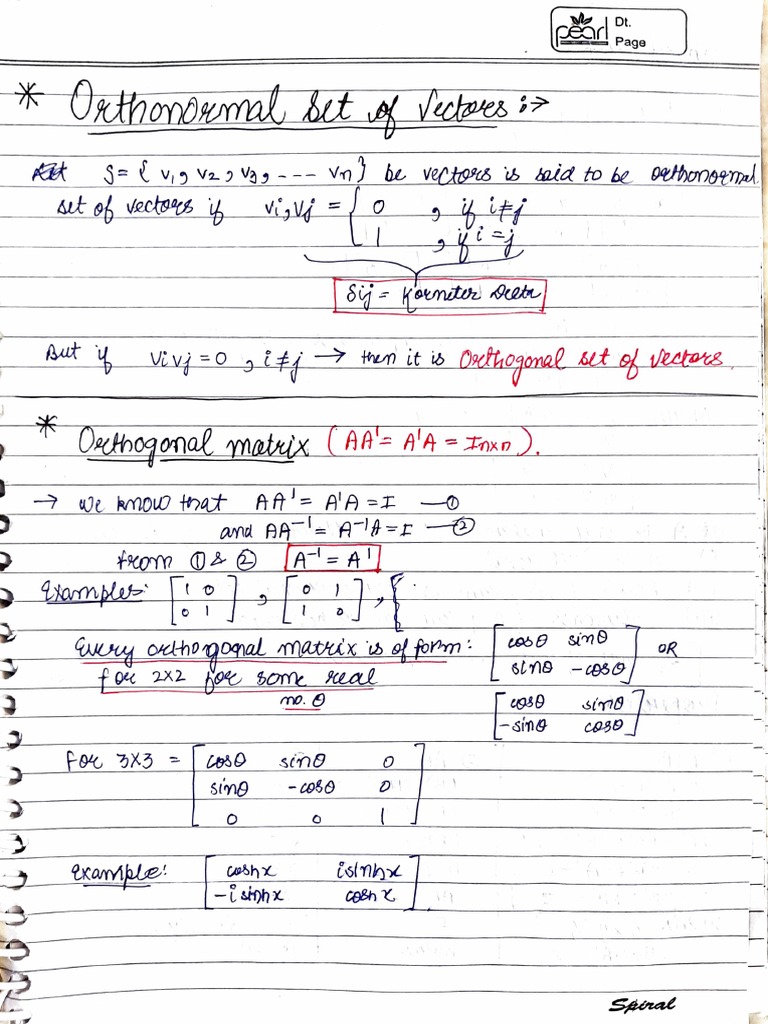 pearl
Dt.
Page
* Orthonormal set of Vectors :→
S = { v1, v2, v3, --- vn } be vectors is said to be orthonormal
set of vectors if vi, vj = { 0 , if i≠j
1 , if i = j
δij = Korneter Delta
But if vivj = 0 , i≠j → then it is Orthogonal set of vectors.
* Orthogonal matrix ( AA' = A'A = In×n ).
→ We know that AA' = A'A = I —①
and AA⁻¹ = A⁻¹A = I —②
from ① & ② A⁻¹ = A'
Examples: [ 1 0 , [ 0 1 , [
0 1 ] 1 0 ]
Every orthogonal matrix is of form: [ cosθ sinθ OR
for 2×2 for some real sinθ -cosθ ]
no. θ [ cosθ sinθ
-sinθ cosθ ]
For 3×3 = [ cosθ sinθ 0
sinθ -cosθ 0
0 0 1 ]
Example: [ coshx isinhx
-isinhx coshx ]
Spiral